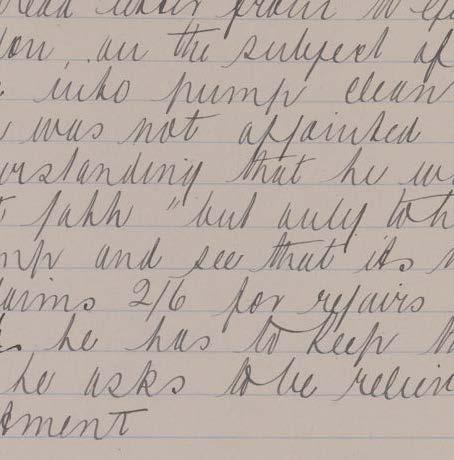 Read letter from W
don, on the subject of
into pump clean
was not appointed
erstanding that he w
t path " but only to h
mp and see that its
laims 2/6 for repairs
he has to keep th
he asks to be reliev
tment